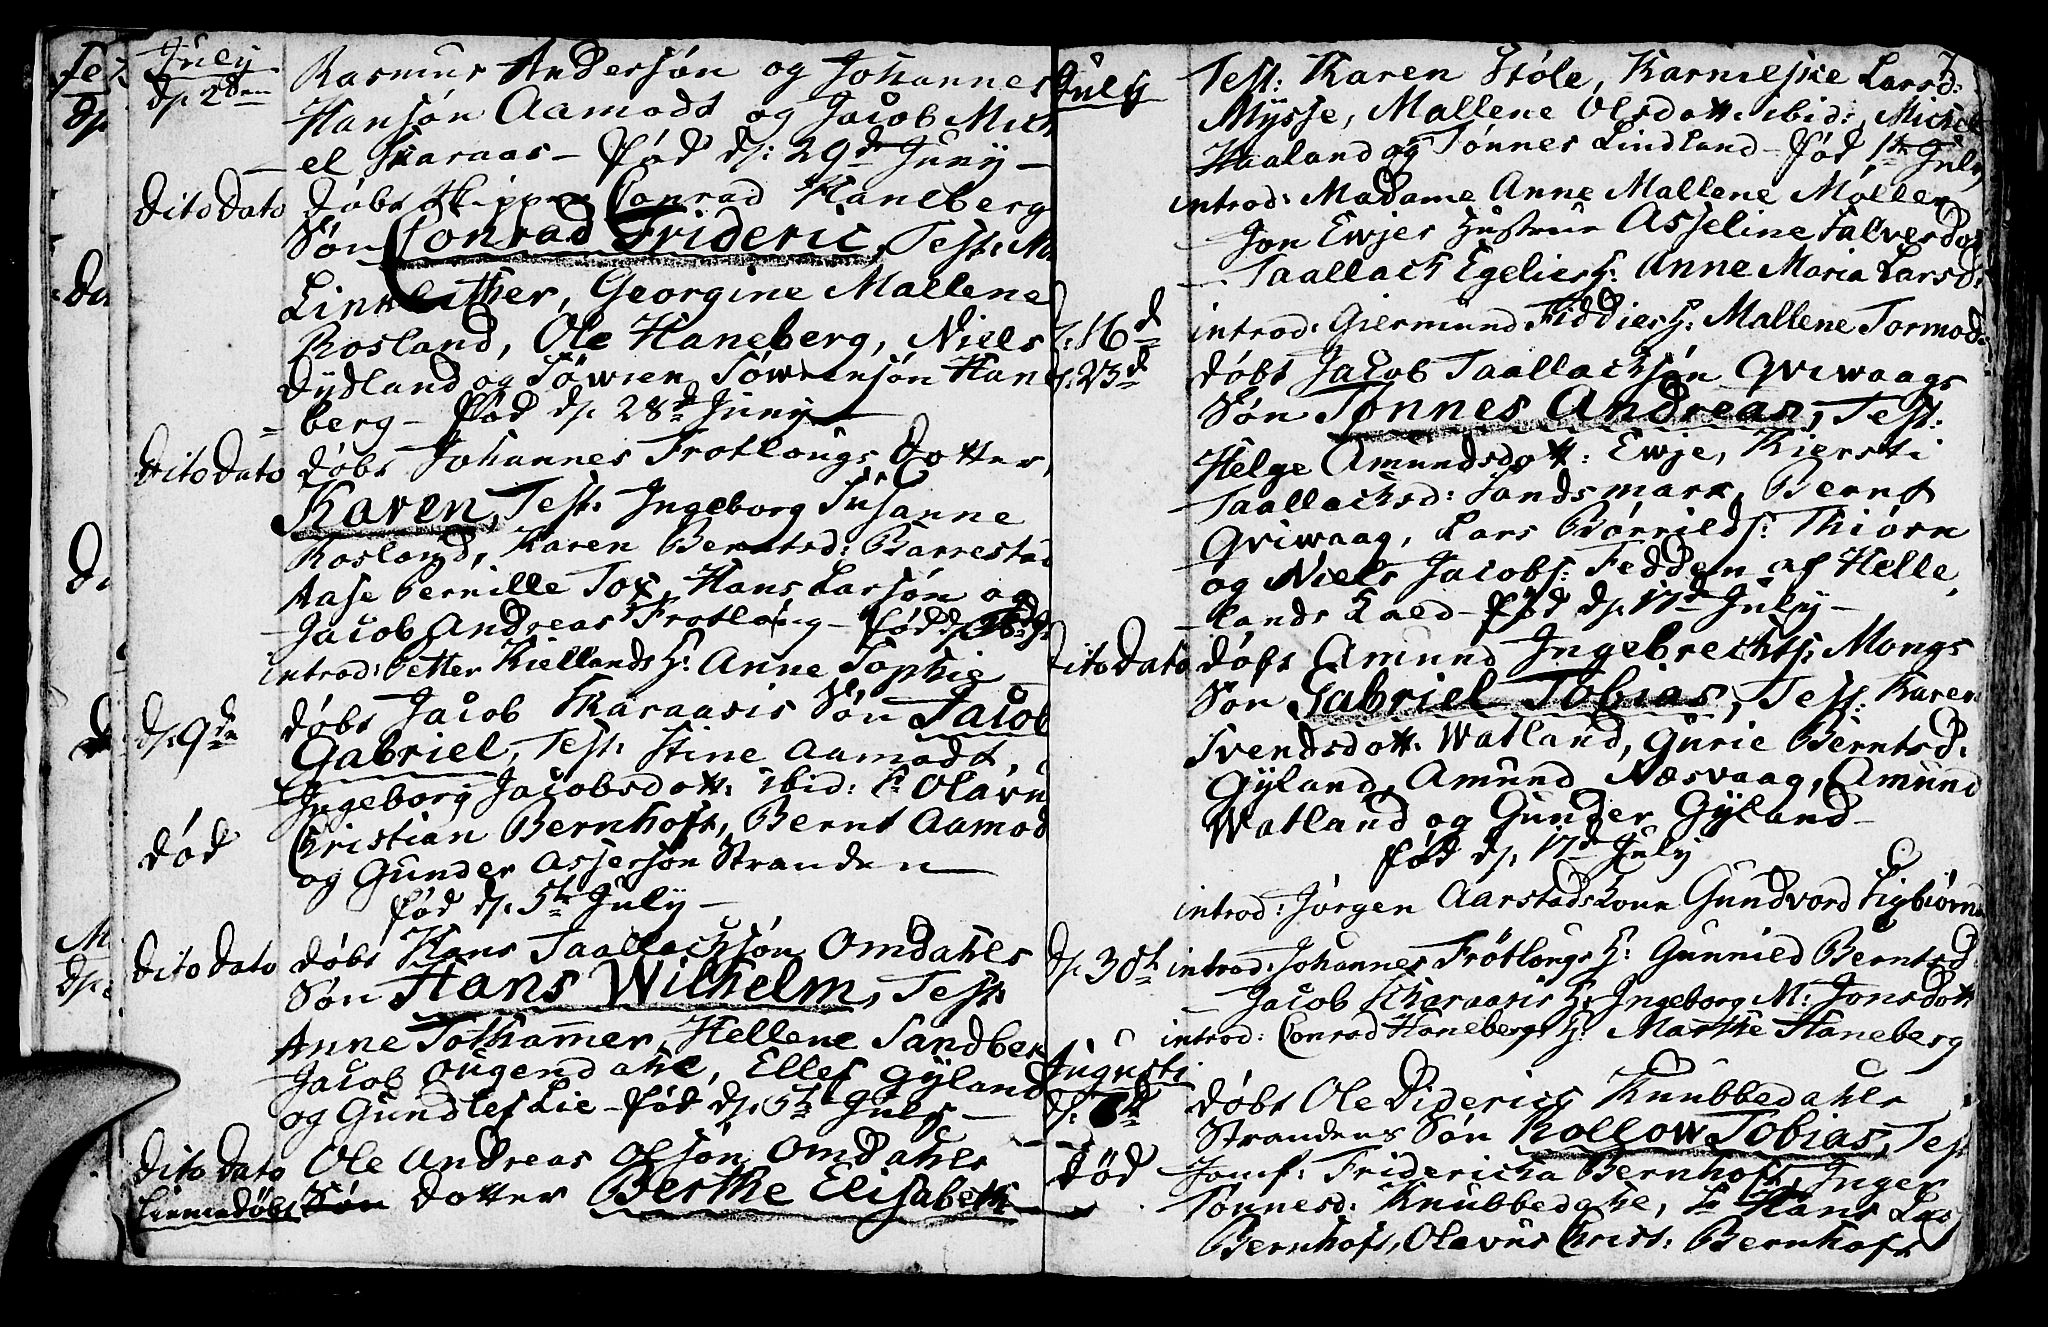 July
dp. 2den
Rasmus Andersøn og Johannes
Hansøn Aamodt og Jacob Mich
el Skaraas – Fød dp: 29d Juny –
Dito Dato døbt Skipper Conrad Haneberg
Søn Conrad Frideric, Test: M
Georgine Mallene
Rosland, Ole Haneberg, Niels
Dydland og Söwren Söwrensøn Hane
berg – Fød dp. 28d Juny –
Dito Dato døbt Johannes Frøtlongs Dotter,
Karen, Test: Ingeborg Susanne
Rosland, Karen Berntsd: Barrestad
Aase Pernille Hans Larsøn og
Jacob Andreas Frøtlong – Fød
introd: Petter Kiellands H: Anne Sophie
dp. 9de døbt Jacob Skaraasis Søn Jacob
Gabriel, Test: Stine Aamodt,
Ingeborg Jacobsdott: ibid: Sr Olavu
Christian Bernhoft, Bernt Aamod
død
og Gunder Asjersøn Stranden
Fød dp. 5te July –
Dito Dato døbt Hans Taallachsøn Omdahls
Søn Hans Wilhelm, Test:
Anne Hellene Sandber
Jacob Ougendahl, Ellef Gyland
og Gundlef Lie – Fød dp. 5te July –
Dito Dato Ole Andreas Olsøn Omdahls
hiemmedøbt Søn Dotter Berthe Elisabeth
July
Test: Karen Støle, Karnelske Larsd:
Mysse, Mallene Olsdott: ibid: Michel
Haaland og Tønnes Lindland – Fød 1ste July
introd: Madame Anne Mallene Møller
Jon Ewjes Hustrue Asseline Salvesd
– Taallach Egelies H: Anne Maria Larsd:
dp. 16d introd: Giermund Fiddies H: Mallene Tormod
dp. 23d døbt Jacob Taallachsøn Qviwaags
Søn Tønnes Andreas, Test:
Helge Amundsdott: Ewje, Kiersti
Taallachsd: Sandsmark, Bernt
Qviwaag, Lars Børrilds: Thiørn
og Niels Jacobs: Fedden af Helle
lands Kald – Fød dp. 17d July –
Dito Dato døbt Amund Ingebrechts: Mongs
Søn Gabriel Tobias, Test: Karen
Svendsdott: Watland, Gurie Berntsd:
Gyland, Amund Næsvaag, Amund
Watland og Gunder Gyland –
Fød dp. 17d July
introd: Jørgen Aarstads Kone Gundvord Sigbiørns
dp. 30te introd: Johannes Frötlongs H: Gunnild Berntsd:
– Jacob Skaraasis H: Ingeborg M: Jonsdott
introd: Conrad Hanebergs H: Marthe Haneberg
Augusti
døbt Ole Diderics Knubbedahls
Strandens Søn Rollow Tobias, Test
død Jomf: Fridericha Bernhoft, Inger
Tønnesd: Knubbedahl, Hans
Bernhoft, Olavus Christ: Bernhoft